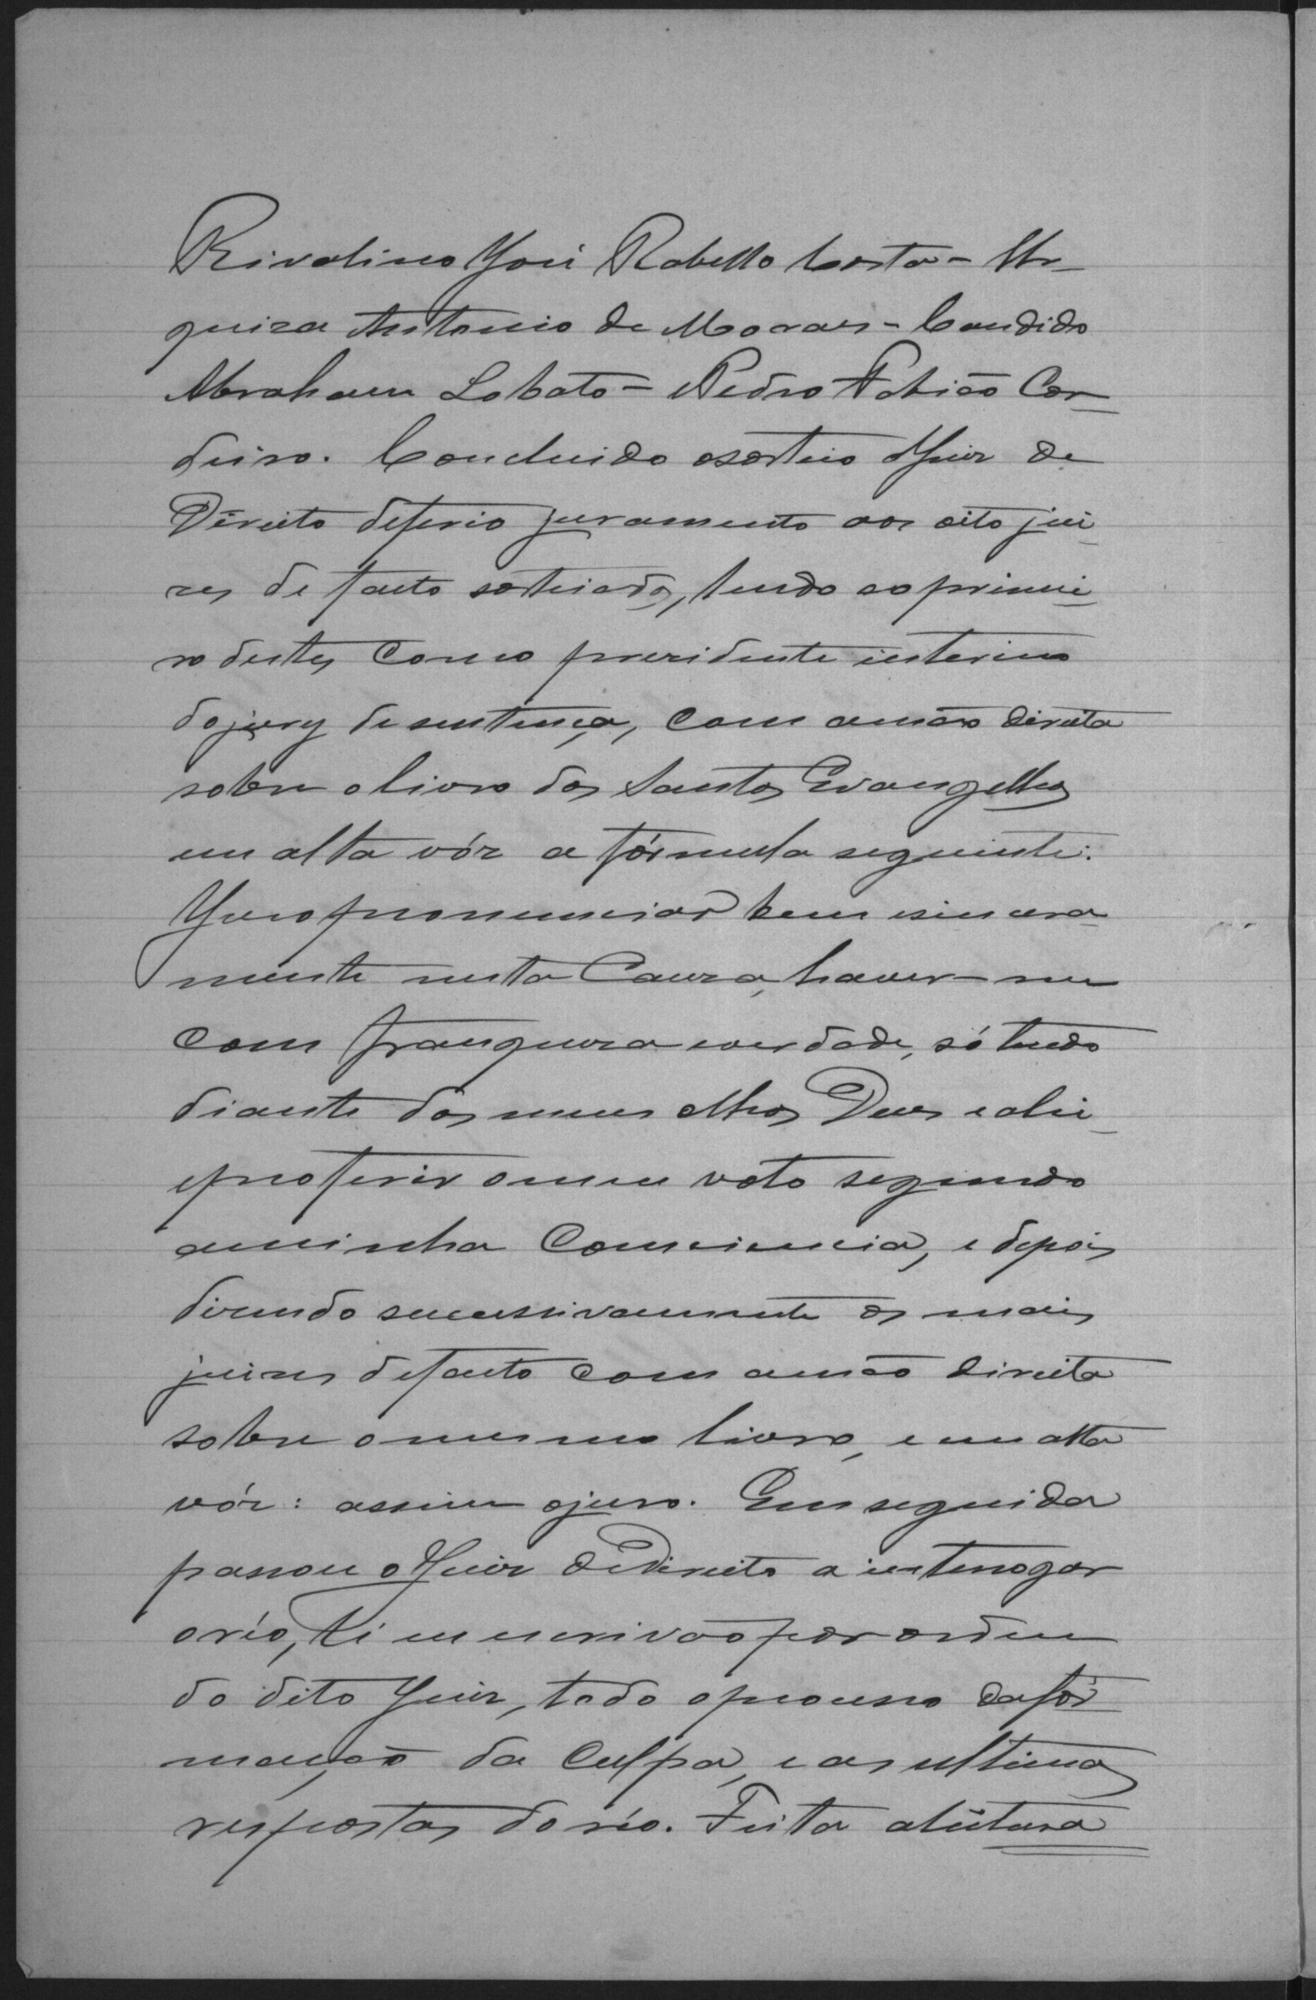 Rivalino José Rabello Costa - Ur-
quiza Antonio de Moraes - Candido
Abraham Lobato - Pedro Fabião Cor-
deiro. Concluido o sorteio o Juiz de
Direito deferio juramento aos oito jui-
zes de facto sorteiados, tendo ao primei-
ro destes como prezidente interino
do jury de sentença, com a mão direita
sobre o livro dos Santos Evangelhos
em alta vóz a fórmula seguinte:
Juro pronunciar bem e sincera-
mente nesta Causa, haver-me
com franqueza e verdade, só tendo
diante dos meus olhos Deus e a lei-
e proferir o meu voto segundo
a minha Consciencia, e depois
dizendo successivamente os mais
juizes de facto com a mão direita
sobre o mesmo livro, e em alta
vóz: assim o juro. Em seguida
passou o Juiz de Direito a interrogar
o réo, li eu escrivão por ordem
do dito Juiz, todo o processo da for-
mação da Culpa, e as ultimas
respostas do réo. Feita a leitura